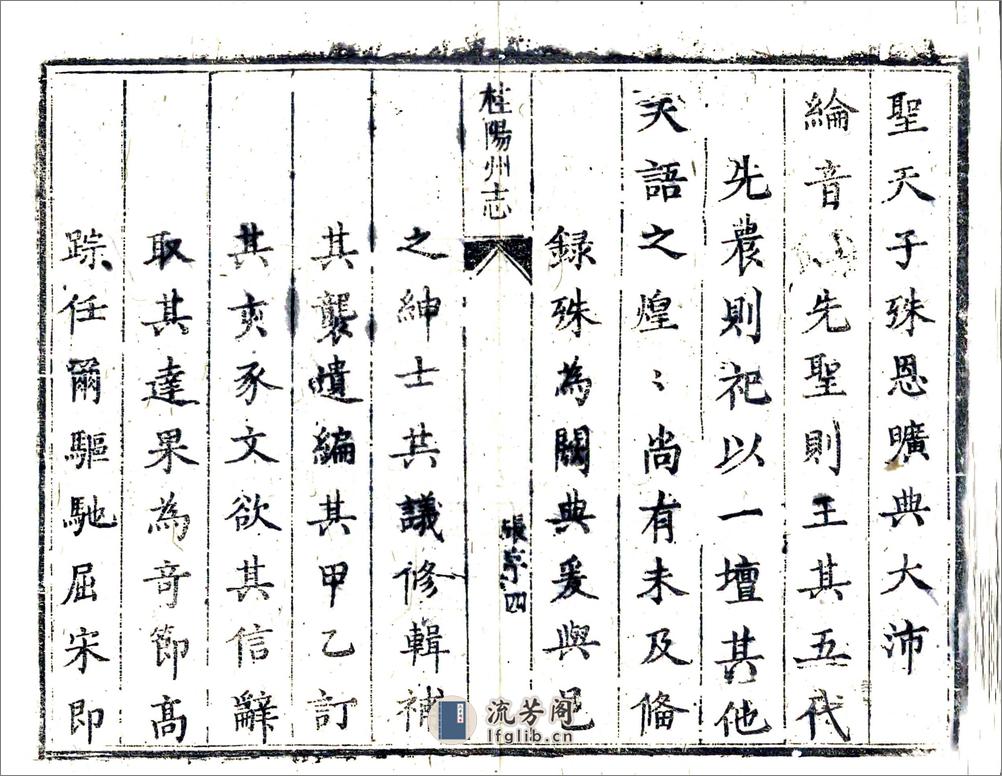 聖天子殊恩曠典大沛
綸音先聖則王其五代
先農則祀以一壇其他
天語之煌〻尚有未及偹
録殊為闕典爰與邑
桂陽州志
張序 四
之紳士共議修輯補
其襲遺編其甲乙訂
其亥豕文欲其信辭
取其達果為竒節高
踪任爾驅馳屈宋即
流芳阁
lfglib.cn